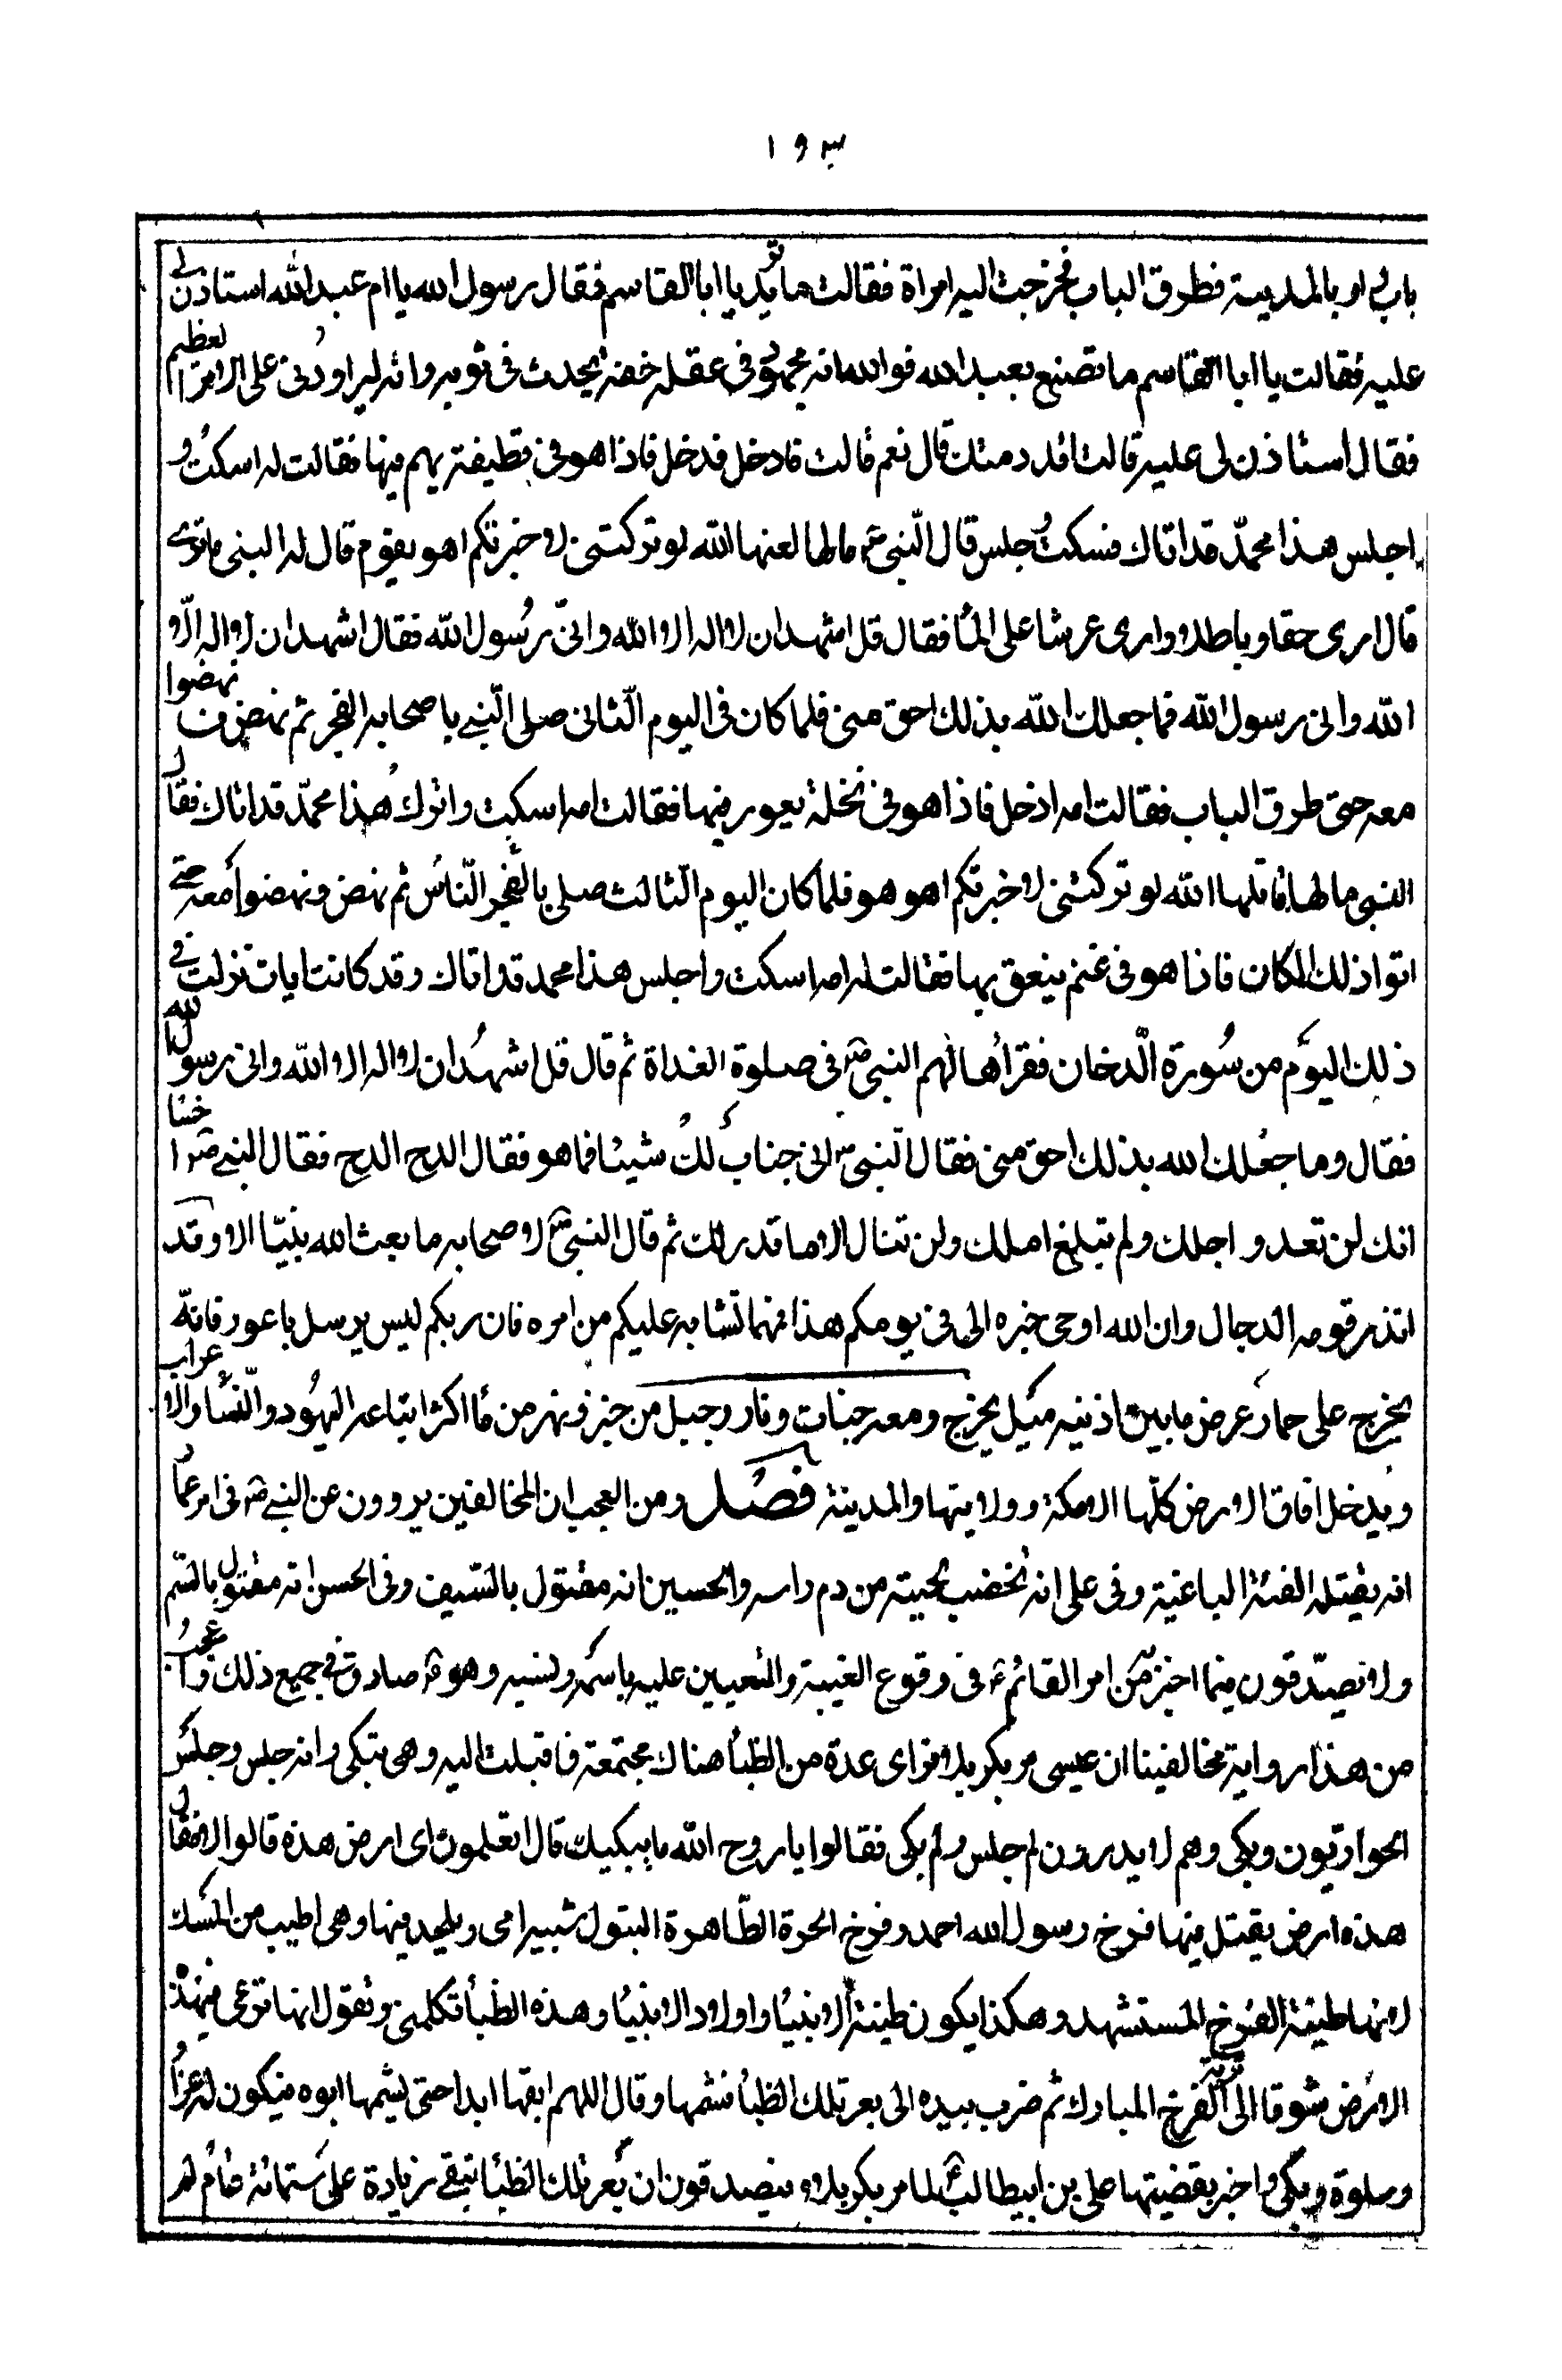 ١٩٣
باب دار بالمدينة فطرق الباب فخرجت اليه امراة فقالت ما تريد يا ابا القاسم فقال رسول الله يا ام عبد الله استاذني لي
عليه فقالت يا ابا القاسم ما تصنع بعبد الله فو الله انه لمجهود في عقله يحدث في ثوبه وانه ليراودني على الامر العظيم
فقال استاذني لي عليه قالت اعلى ذمتك قال نعم قالت فادخل فدخل فاذا هو في قطيفة يهم فيها فقالت له اسكت و
اجلس هذا محمد قد اتاك فسكت وجلس قال النبي ص ما لها لعنها الله لو تركتني لاخبرتكم اهو هو ثم قال له النبي ما ترى
قال ارى حقا وباطلا وارى عرشا على الماء فقال قل اشهد ان لا اله الا الله واني رسول الله فقال اشهد ان لا اله الا
الله واني رسول الله فما جعلك الله بذلك احق مني فلما كان في اليوم الثاني صلى النبي باصحابه الفجر ثم نهض فنهضوا
معه حتى طرق الباب فقالت امه ادخل فاذا هو في نخلة يعور فيها فقالت امه اسكت وانزل هذا محمد قد اتاك فقال
النبي ما لها قاتلها الله لو تركتني لاخبرتكم اهو هو فلما كان اليوم الثالث صلى بالفجر الناس ثم نهض ونهضوا معه حتى
اتوا ذلك المكان فاذا هو في غنم ينعق بها فقالت له امه اسكت واجلس هذا محمد قد اتاك وقد كانت ايات نزلت في
ذلك اليوم من سورة الدخان فقراها لهم النبي ص في صلوة الغداة ثم قال قل اشهد ان لا اله الا الله واني رسول الله
فقال وما جعلك الله بذلك احق مني فقال النبي ص اني خبات لك شيئا فما هو فقال الدح الدح فقال النبي ص اخسا
انك لن تعدو اجلك ولم تبلغ املك ولن تنال الا ما قدر لك ثم قال النبي ص لاصحابه ما بعث الله نبيا الا وقد
انذر قومه الدجال وان الله اوحى خبره الى في يومكم هذا فمهما تشابه عليكم من امره فان ربكم ليس برسل باعور فانه
يخرج على حمار عرض ما بين اذنيه ميل يخرج ومعه جنات ونار وجبل من خبز ونهر من ماء اكثر اتباعه اليهود والنساء والاعراب
ويدخل افاق الارض كلها الا مكة وولايتها والمدينة فصل ومن العجب ان المخالفين يروون عن النبي ص في امر عمار
انه يقتله الفئة الباغية وفي على انه تخضب لحيته من دم راسه والحسين انه مقتول بالسيف وفي الحسن انه مقتول بالسم
ولا يصدقون فيما اخبر من امر القائم ع في وقوع الغيبة والتعيين عليه باسمه ونسبه وهو ص صادق في جميع ذلك واعجب
من هذا رواية مخالفينا ان عيسى مر بكربلا فراى عدة من الظباء هناك مجتمعة فاقبلت اليه وهى تبكى وانه جلس وجلس
الحواريون وبكى وهم لا يدرون لم جلس ولم بكى فقالوا يا روح الله ما يبكيك قال اتعلمون اى ارض هذه قالوا لا فقال
هذه ارض يقتل فيها فرخ رسول الله احمد وفرخ الحرة الطاهرة البتول شبيه امى ويلحد فيها وهى اطيب من المسك
لانها طينة الفرخ المستشهد وهكذا يكون طينة الانبياء واولاد الانبياء وهذه الظباء تكلمني وتقول انها ترعى في هذه
الارض شوقا الى تربة الفرخ المبارك ثم ضرب بيده الى بعر تلك الظباء فشمها وقال اللهم ابقها ابدا حتى يشمها ابوه فيكون له عزاء
وسلوة وبكى واخبر بقضيتها على بن ابيطالب ع لما مر بكربلاء فيصدقون ان بعر تلك الظباء تبقى زيادة على ستمائة عام لم